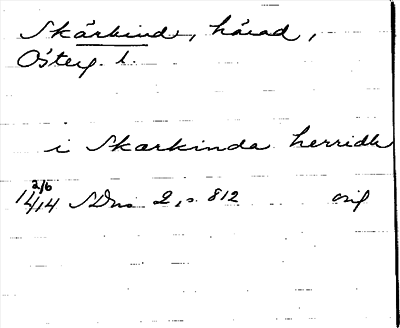 Skärkinds, härad,
Österg. l.
i Skærkinda herridh
2/6
1414 SDns 2, s. 812 orig